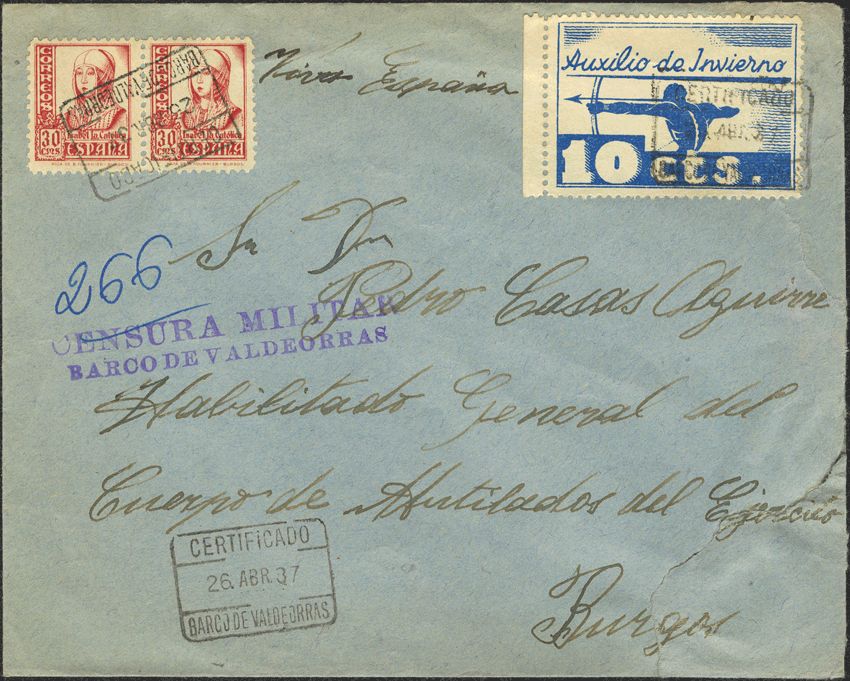 CORREOS
30
CTS
Isabel la Católica
ESPAÑA
CORREOS
30
CTS
Isabel la Católica
ESPAÑA
CERTIFICADO
BARCO DE VALDEORRAS
Viva España
Auxilio de Invierno
10 CTS.
CERTIFICADO
ABR.37
Sr Dn
Pedro Casas Aguirre
266
CENSURA MILITAR
BARCO DE VALDEORRAS
Habilitado General del
Cuerpo de Mutilados del Ejercito
CERTIFICADO
26.ABR.37
BARCO DE VALDEORRAS
Burgos